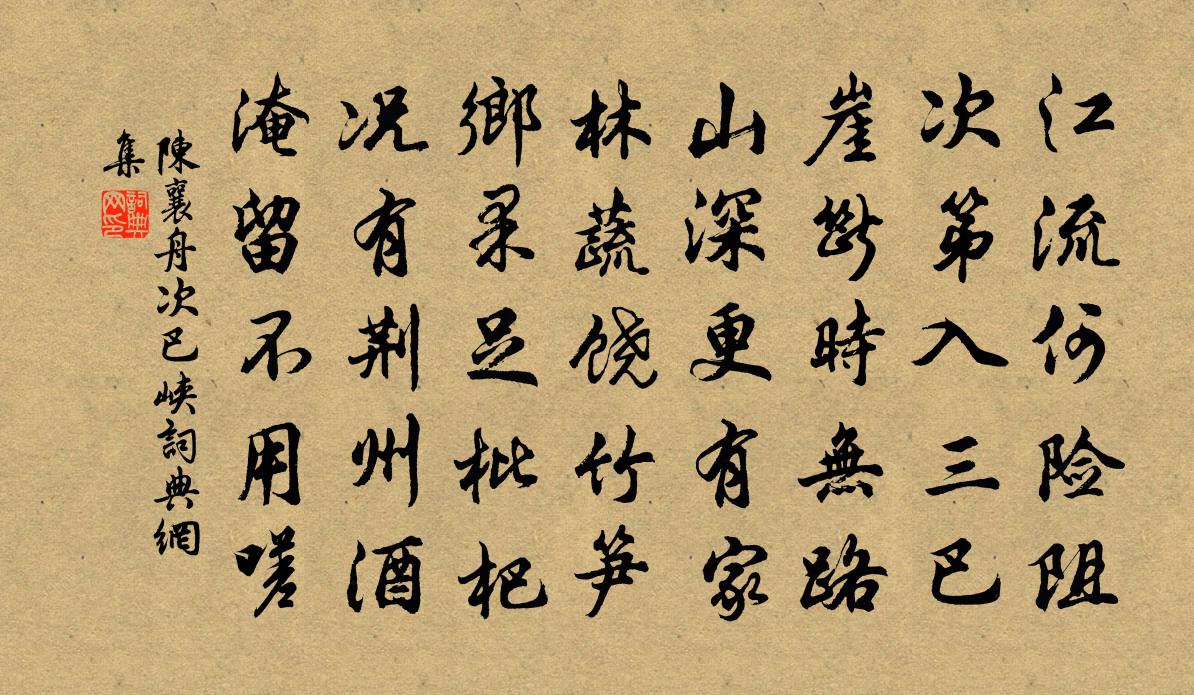 江流何险阻
次第入三巴
崖断時無路
山深更有家
林蔬饶竹笋
鄉果足枇杷
况有荆州酒
淹留不用嗟
陳襄舟次巴峡詞典網
集
詞典
网印